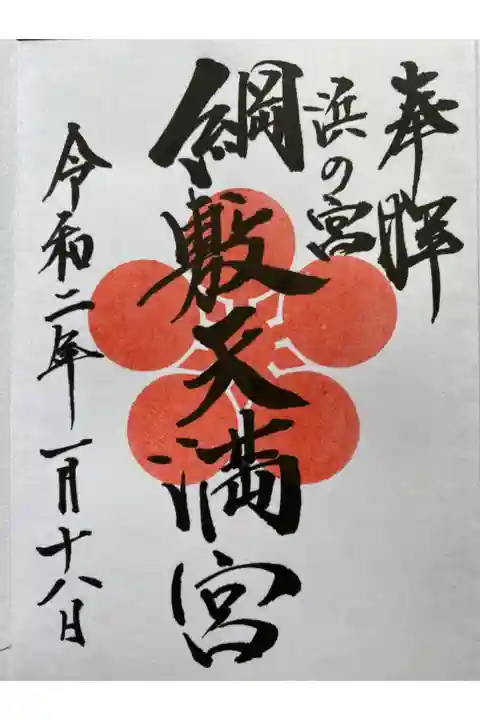 奉拝
浜の宮
綱敷天満宮
令和二年一月十八日